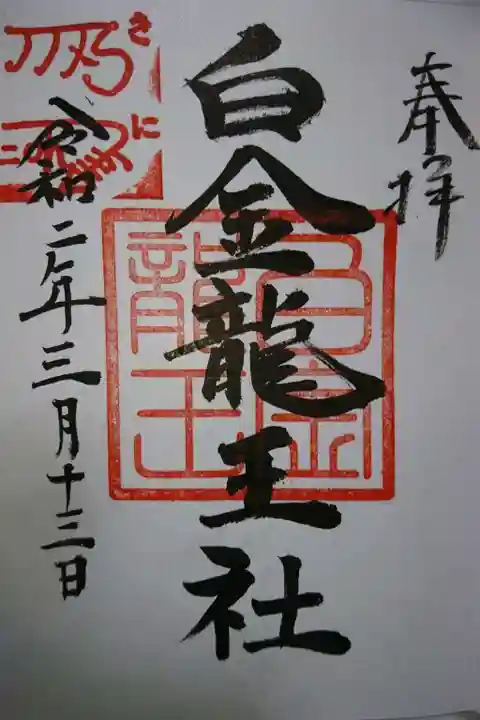 奉拝
白金龍王社
白金龍王
令和二年三月十三日